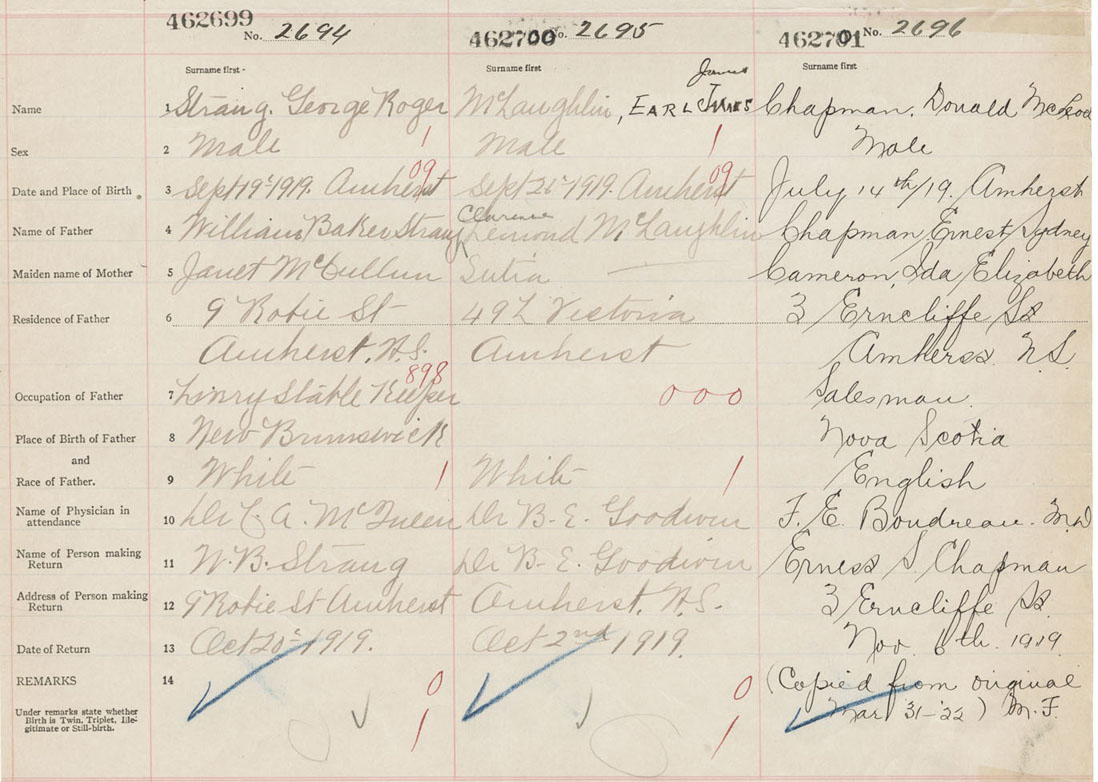 462699 No. 2694 462700 No. 2695 462701 No. 2696
Surname first - Surname first James Surname first
Name 1 Strang. George Roger McLaughlin, EARL JAMES Chapman. Donald McLeod
Sex 2 Male 1 Male 1 Male
09 09
Date and Place of Birth. 3 Sept 19th 1919. Amherst Sept 21st 1919. Amherst July 14th/19. Amherst
Clarence
Name of Father 4 William Baker Strang McLaughlin Chapman, Ernest Sydney
Maiden name of Mother 5 Janet McCullum Sutia Cameron, Ida Elizabeth
Residence of Father 6 9 Robie St 49 Victoria 3 Erncliffe St
Amherst. N.S. Amherst Amherst. N.S.
898
Occupation of Father 7 Livry Stable Keeper 000 Salesman.
Place of Birth of Father 8 New Brunswick Nova Scotia
and
Race of Father. 9 White 1 White 1 English
Name of Physician in
attendance 10 Dr C. A. McQueen Dr B. E. Goodwin F. E. Boudreau. M.D
Name of Person making
Return 11 W. B. Strang Dr B. E. Goodwin Ernest S. Chapman
Address of Person making
Return 12 9 Robie St Amherst Amherst. N.S. 3 Erncliffe St.
Date of Return 13 Oct 20th 1919. Oct 2nd 1919. Nov. 6th. 1919.
REMARKS 14 0 0 (Copied from original
Under remarks state whether
Birth is Twin, Triplet, Ille-
gitimate or Still-birth. 1 1 Mar 31-'22) M.F.